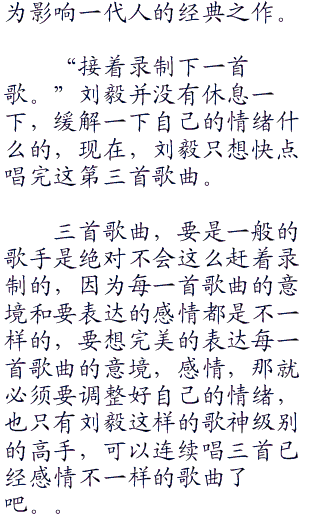 为影响一代人的经典之作。
“接着录制下一首
歌。”刘毅并没有休息一
下，缓解一下自己的情绪什
么的，现在，刘毅只想快点
唱完这第三首歌曲。
三首歌曲，要是一般的
歌手是绝对不会这么赶着录
制的，因为每一首歌曲的意
境和要表达的感情都是不一
样的，要想完美的表达每一
首歌曲的意境，感情，那就
必须要调整好自己的情绪，
也只有刘毅这样的歌神级别
的高手，可以连续唱三首已
经感情不一样的歌曲了
吧。。